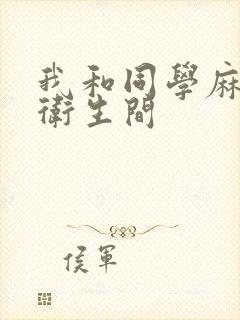 我和同學麻
衛生間
侯軍